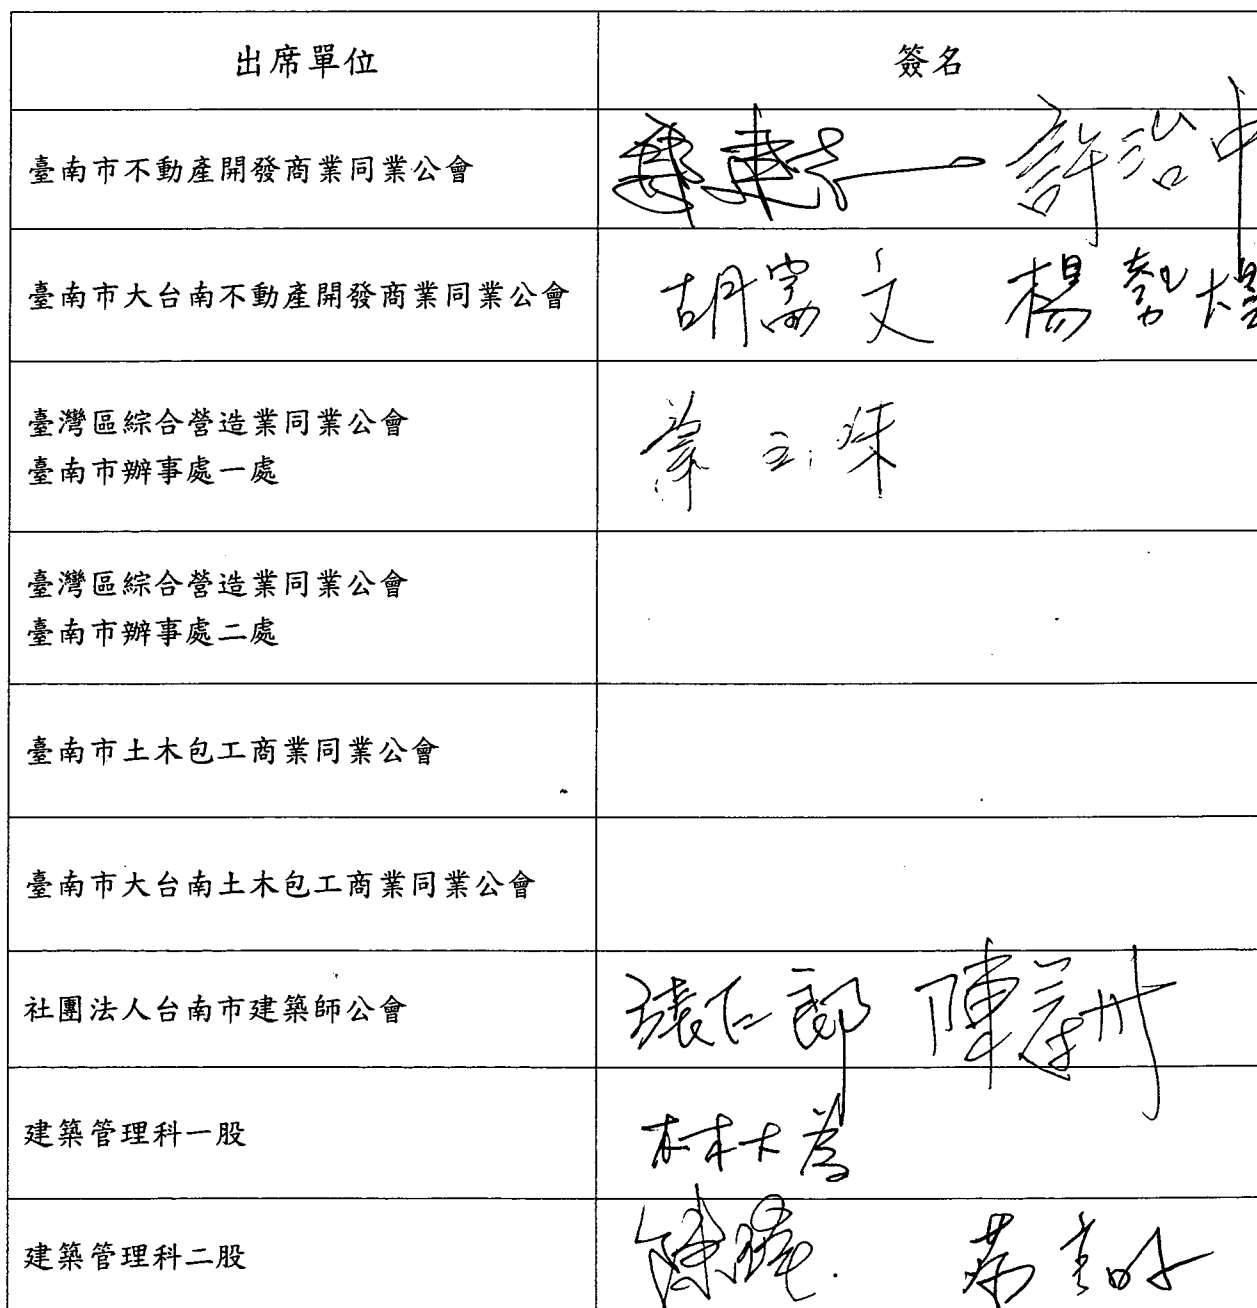 出席單位
簽名
臺南市不動產開發商業同業公會
許治中
臺南市大台南不動產開發商業同業公會
胡富文 楊勢煌
臺灣區綜合營造業同業公會
臺南市辦事處一處
臺灣區綜合營造業同業公會
臺南市辦事處二處
臺南市土木包工商業同業公會
臺南市大台南土木包工商業同業公會
社團法人台南市建築師公會
建築管理科一股
林大為
建築管理科二股